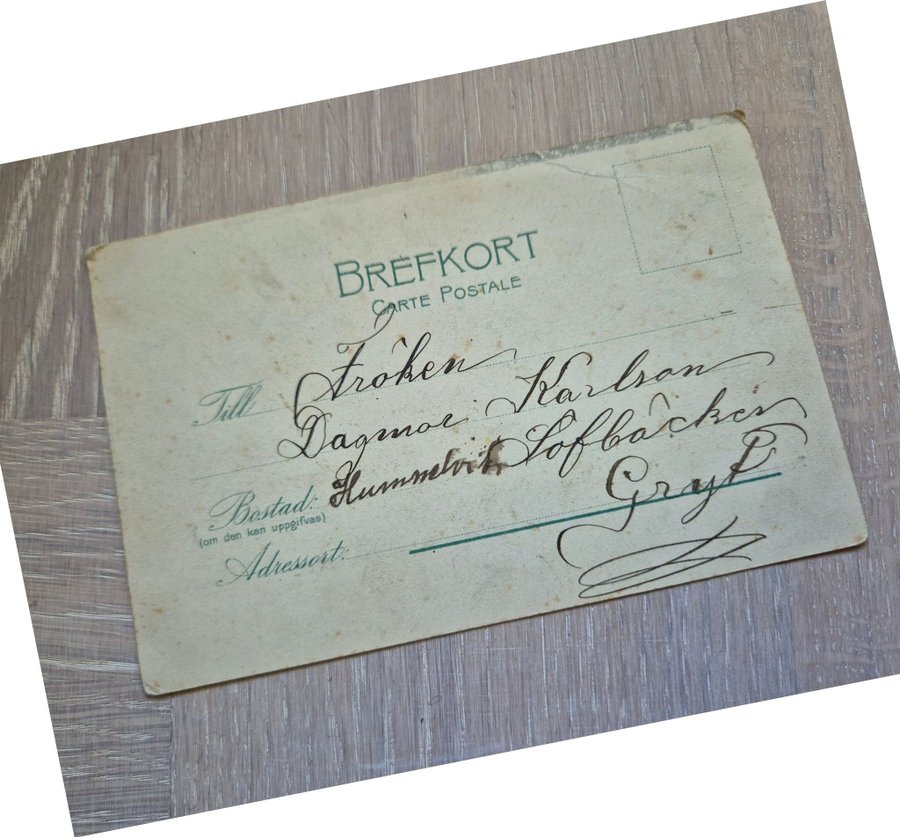 BREFKORT
CARTE POSTALE
Till Fröken
Dagmar Karlson
Bostad: Hummelvik Löfbacken
(om den kan uppgifvas)
Gryt
Adressort: